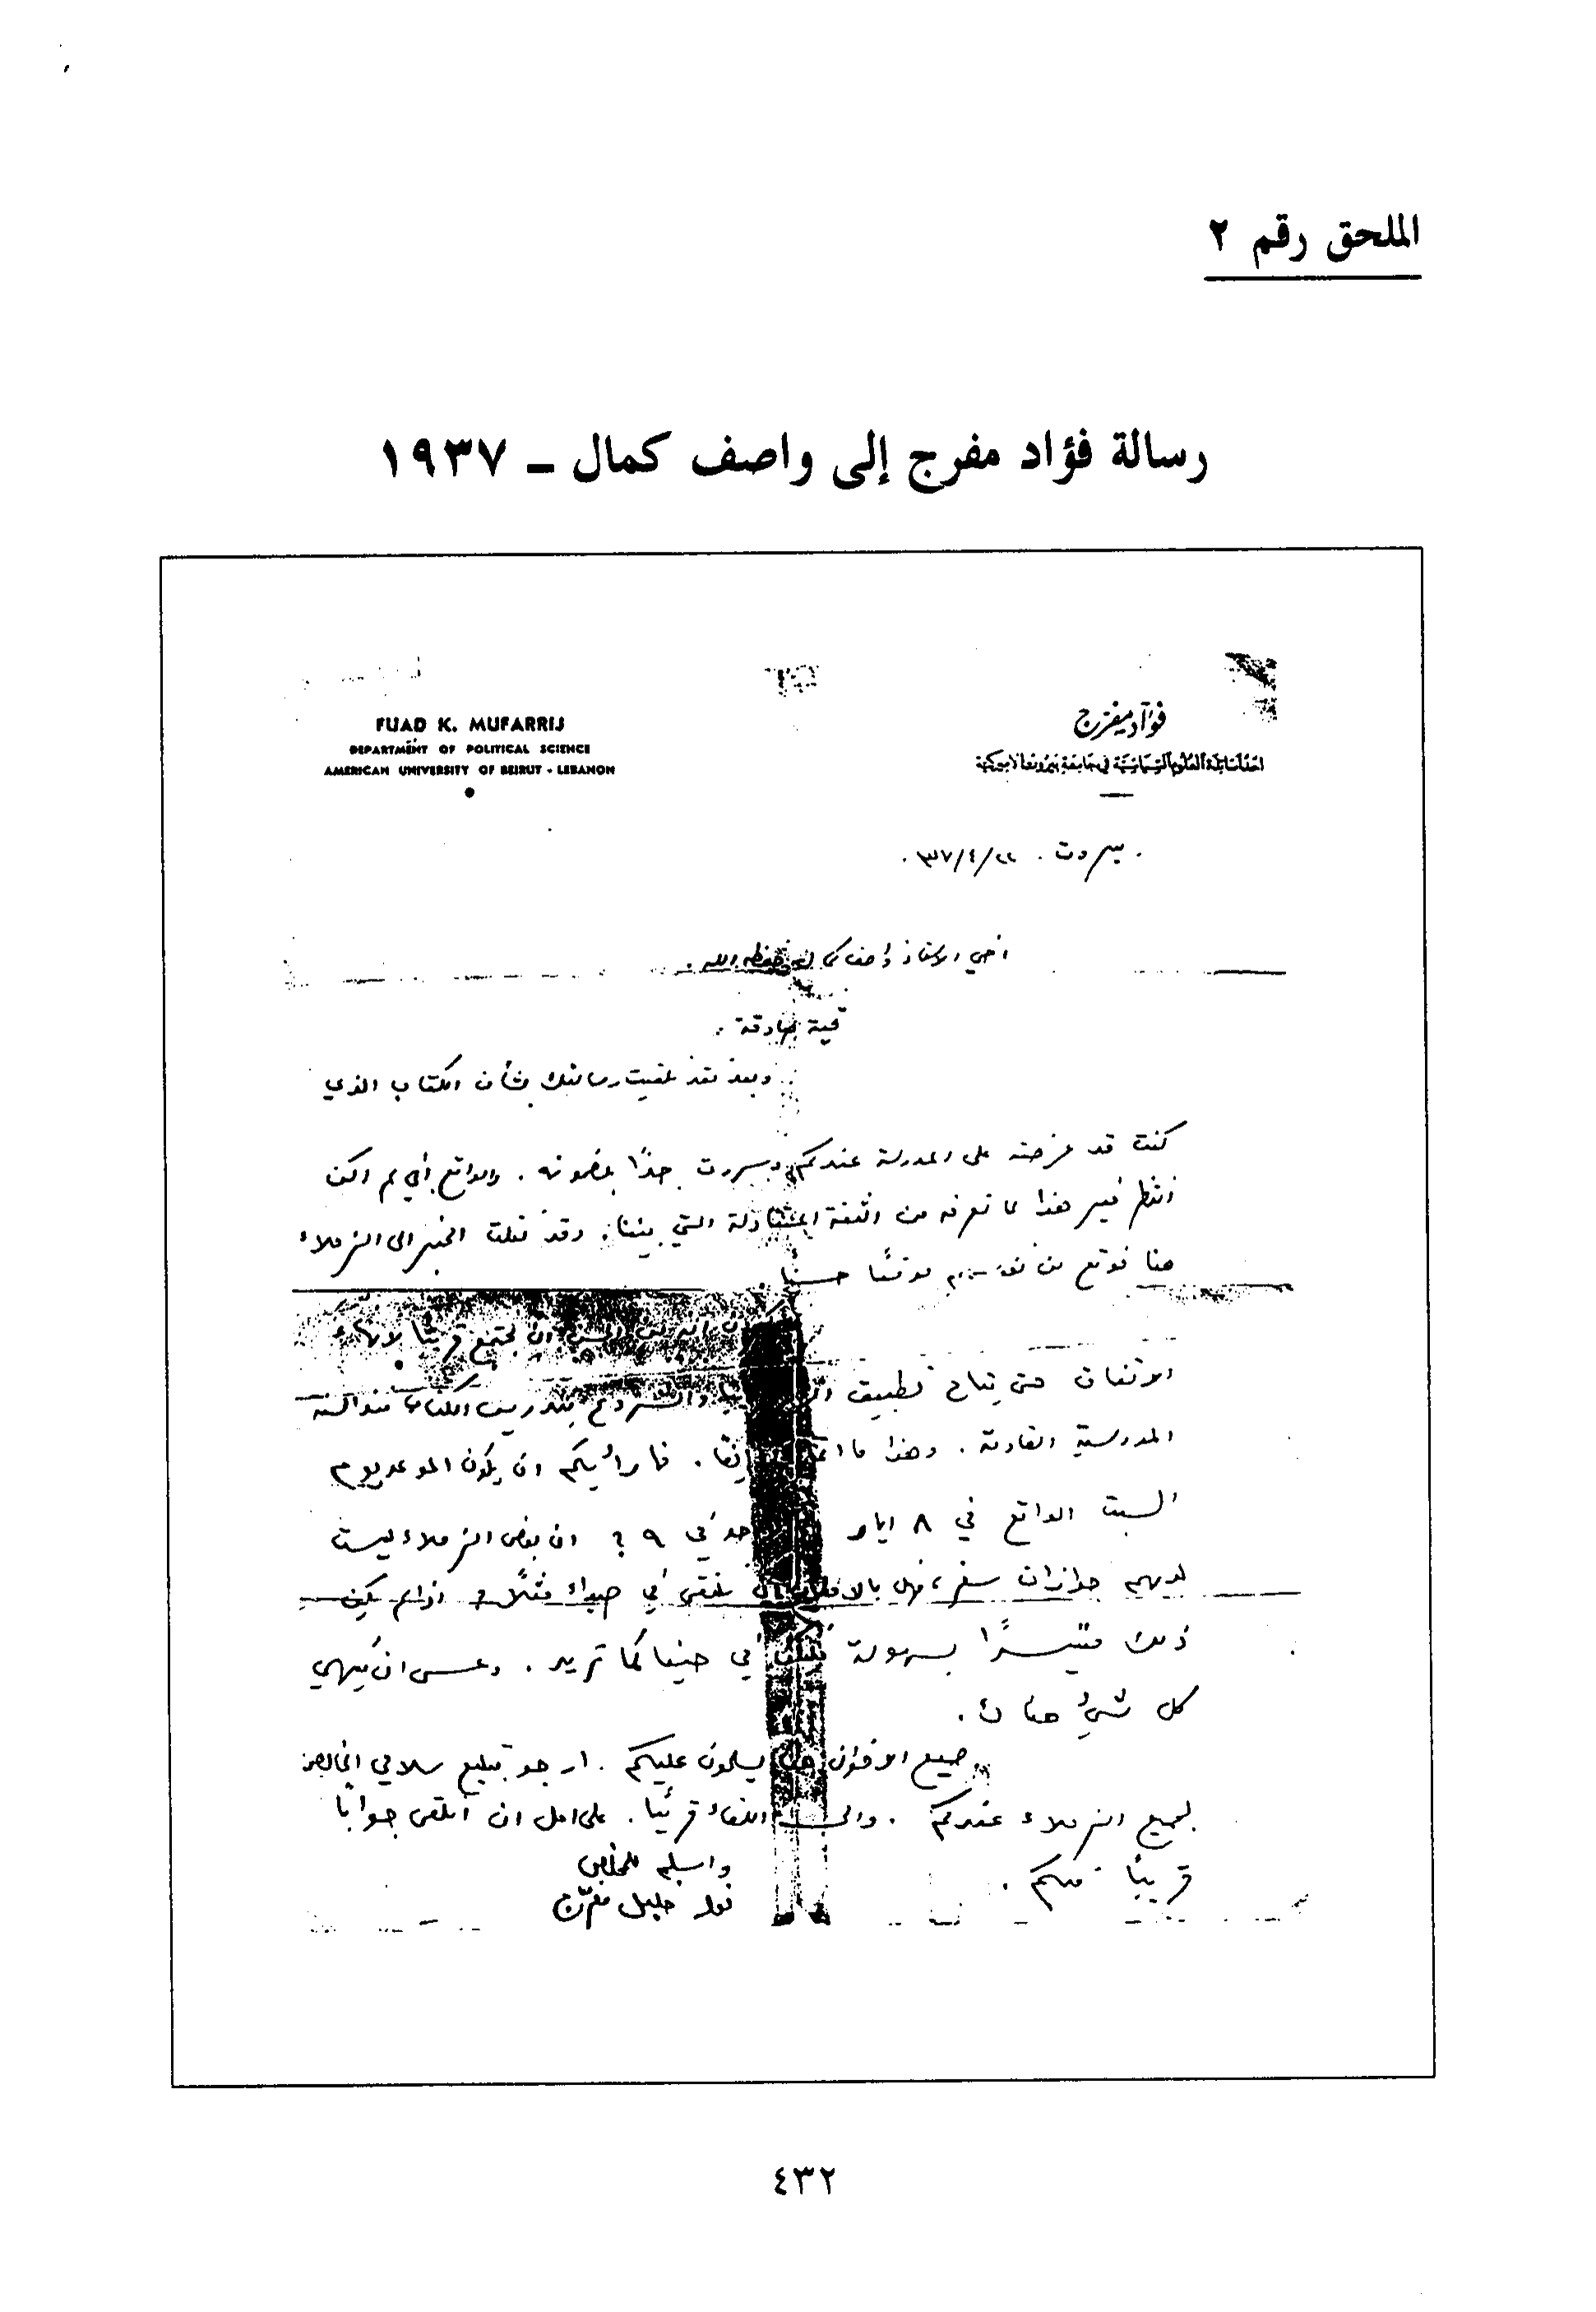 الملحق رقم ٢
رسالة فؤاد مفرج إلى واصف كمال ــ ١٩٣٧
FUAD K. MUFARRIJ
DEPARTMENT OF POLITICAL SCIENCE
AMERICAN UNIVERSITY OF BEIRUT - LEBANON
فؤاد مفرج
احد اساتذة العلوم السياسية في جامعة بيروت الاميركية
بيروت . ٢٢/٤/٣٧ .
اخي الاستاذ واصف كمال حفظه الله .
تحية صادقة .
وبعد فقد تلقيت رسالتك بشأن الكتاب الذي
كنت قد عرضته على المدرسة عندكم وسررت جدًا بمضمونه . والواقع أني لم اكن
انتظر غير هذا لما نعرفه من الثقة المتبادلة التي بيننا . وقد نقلت الخبر الى الزملاء
هنا فوقع من نفوسهم موقعًا حسنًا .
ان نجتمع قريبًا لانهاء
الاتفاق حتى يتاح تطبيق والشروع بتدريس الكتاب منذ السنة
المدرسية القادمة . وهذا ما . فما رأيكم ان يكون الموعد يوم
السبت الواقع في ٨ ايار في ٩ ؟ ان بعض الزملاء ليست
لديهم جوازات سفر ، فهل بالامكان ان نلتقي في صيدا مثلًا ؟ واذا لم يكن
ذلك متيسرًا بسهولة في حيفا كما تريد . وعسى ان ينتهي
كل شيء هناك .
جميع الاخوان هنا يسلمون عليكم . ارجو تبليغ سلامي الخالص
لجميع الزملاء عندكم . والى اللقاء قريبًا . على امل ان اتلقى جوابًا
قريبًا منكم .
واسلم للمخلص
فؤاد خليل مفرّج
٤٣٢